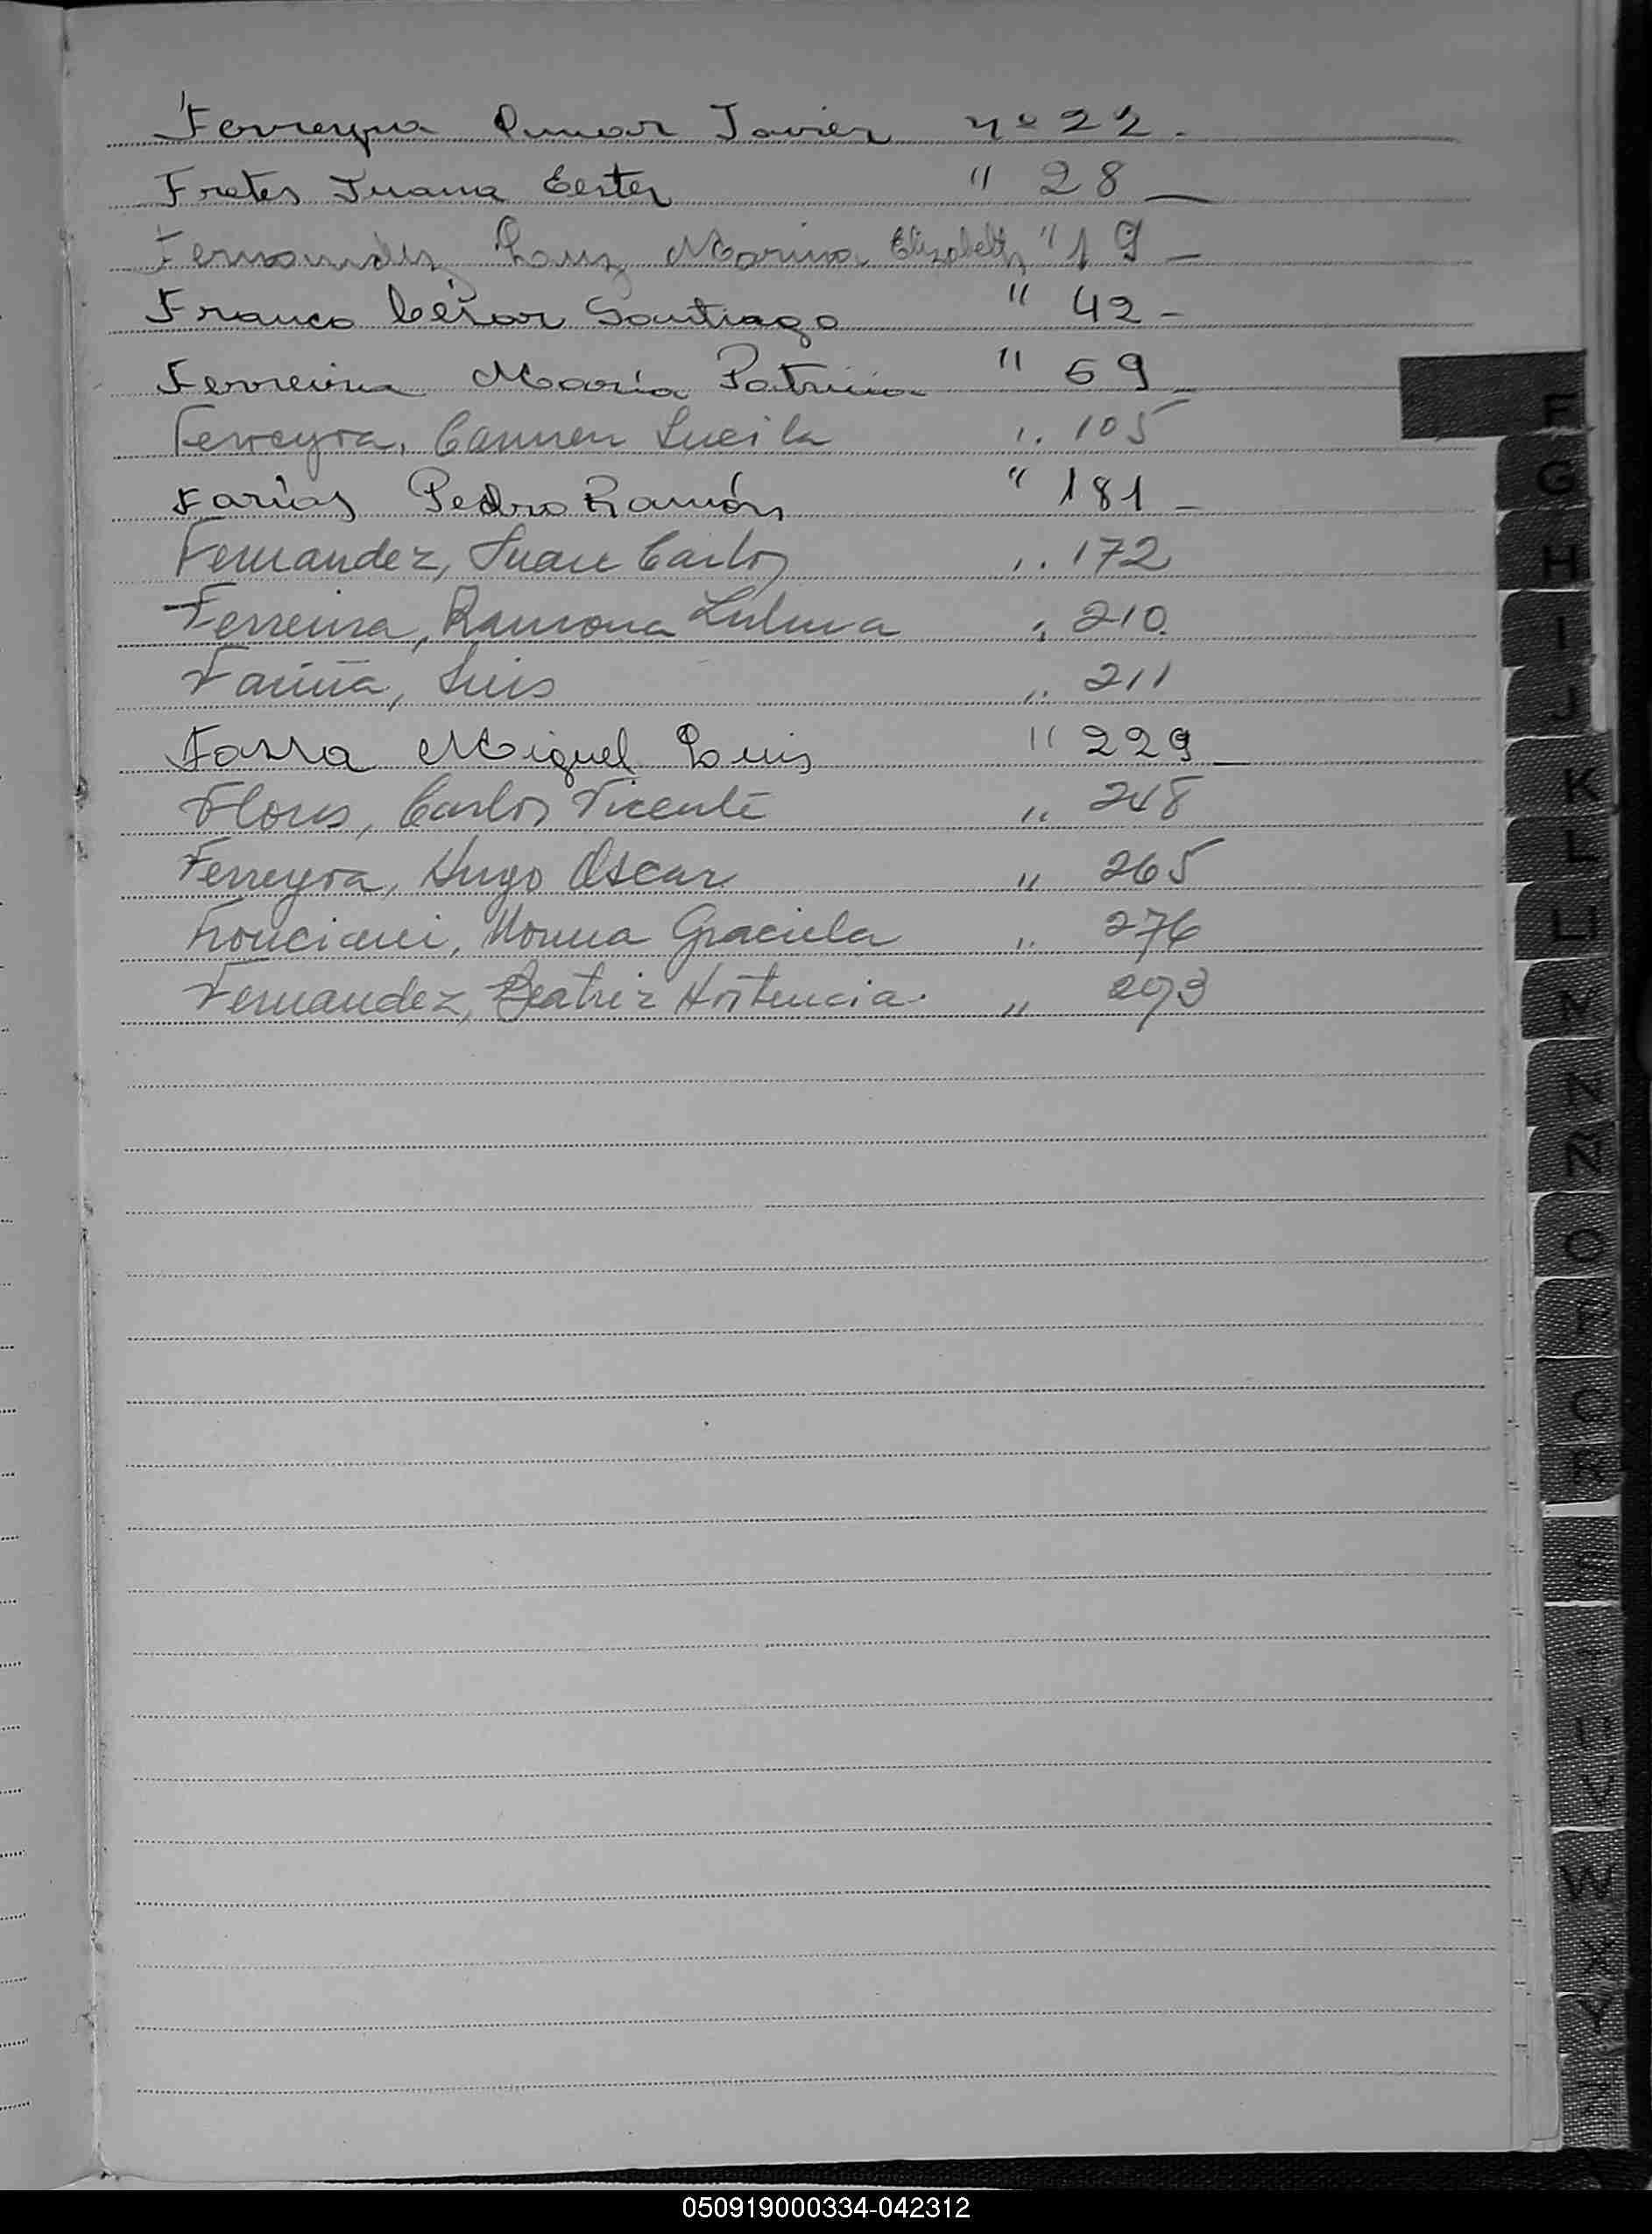 Ferreyra Omar Javier nº 22-
Fretes Juana Ester " 28 —
Fernandez Marina Elizabeth " 19 -
Franco César Santiago " 42 -
Ferreira María Patricia " 69 -
Ferreyra, Carmen Lucila " 105
Farías Pedro Ramón " 181 -
Fernandez, Juan Carlos " 172
Ferreira, Ramona Zulma " 210.
Fariña, Luis " 211
Miguel Luis " 229 —
Flores, Carlos Vicente " 248
Ferreyra, Hugo Oscar " 265
Norma Graciela " 276
Fernandez, Beatriz Hortencia. " 293
F
G
H
I
J
K
L
LL
M
N
Ñ
O
R
S
V
W
X
Y
050919000334-042312